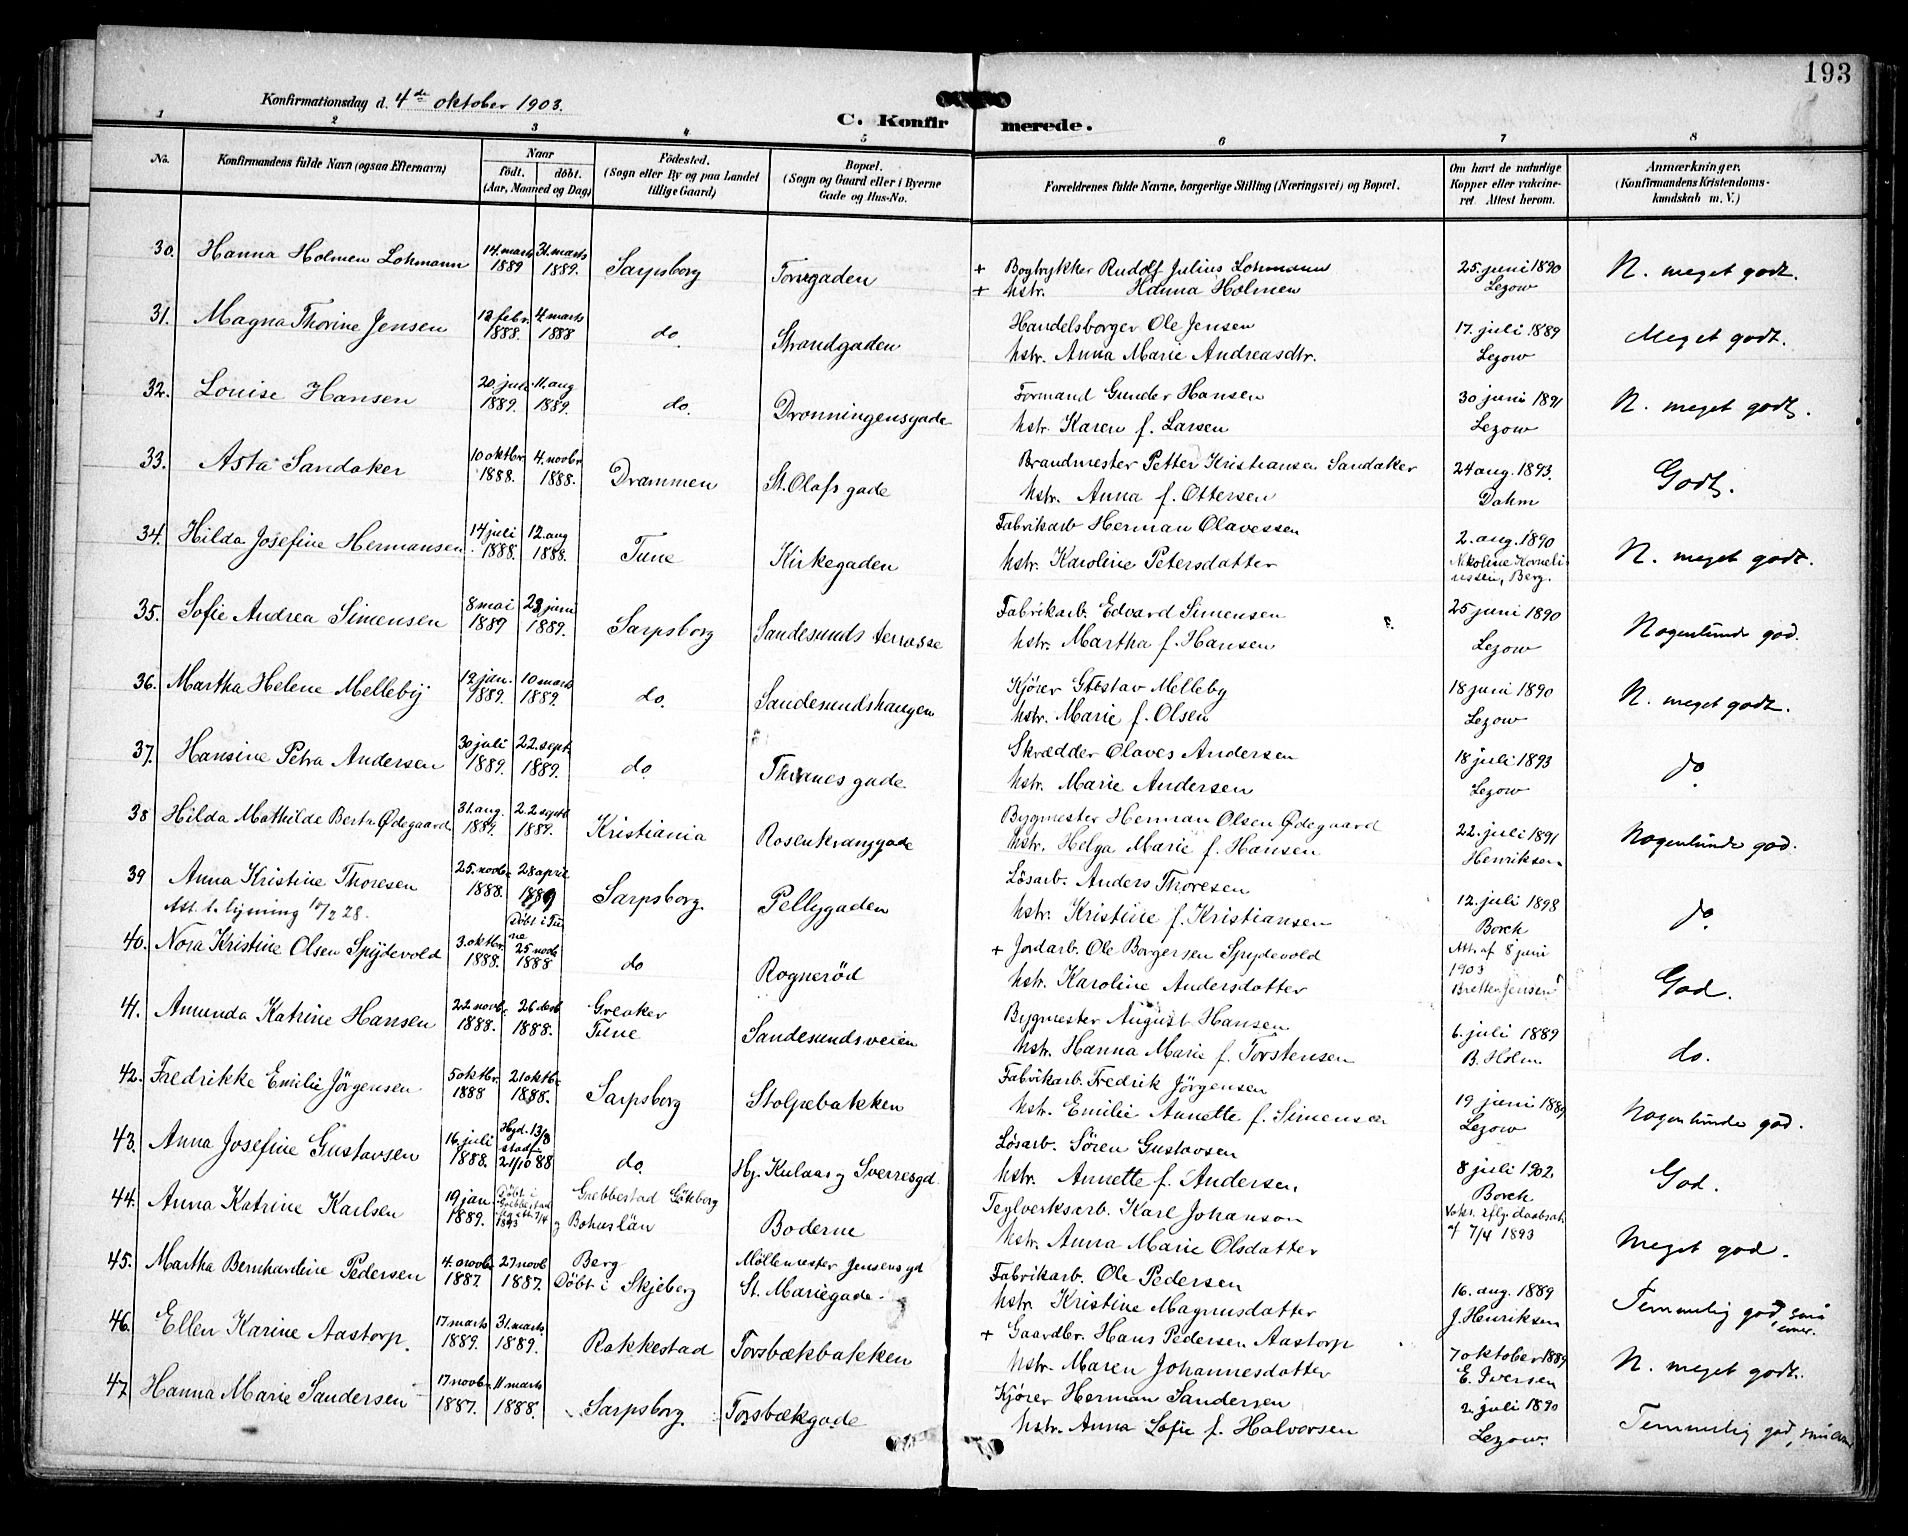 193
Konfirmationsdag d. 4de oktober 1903.
C. Konfirmerede.
1 2 3 4 5 6 7 8
No. Konfirmandens fulde Navn (ogsaa Efternavn)
Naar
født. døbt.
(Aar, Maaned og Dag)
Fødested.
(Sogn eller By og paa Landet
tillige Gaard)
Bopæl.
(Sogn og Gaard eller i Byerne
Gade og Hus-No.
Forældrenes fulde Navne, borgerlige Stilling (Næringsvei) og Bopæl.
Om havt de naturlige
Kopper eller vakcine-
ret Attest herom.
Anmærkninger.
(Konfirmandens Kristendoms-
kundskab m. V.)
30. Hanna Holmen Lohmann 14. marts 1889 31. marts 1889. Sarpsborg Torvgaden + Bogtrykker Rudolf Julius Lohmann 25. juni 1890 N. meget godt.
+ hstr. Hanna Holmen Lezow
31. Magna Thorine Jensen 12 febr. 1888. 4. marts 1888 do. Strandgaden Handelsborger Ole Jensen 17. juli 1889 Meget godt.
hstr. Anna Marie Andreasdtr. Lezow
32. Louise Hansen 20. juli 1889. 11. aug 1889. do. Dronningensgade Formand Gunder Hansen 30 juni 1891 N. meget godt.
hstr. Karen f. Larsen Lezow
33. Asta Sandaker 10 oktbr. 1888. 4. novbr. 1888. Drammen St. Olafs gade Brandmester Petter Kristiansen Sandaker 24 aug. 1893. Godt.
hstr. Anna f. Ottersen Dahm
34. Hilda Josefine Hermansen 14 juli 1888. 12. aug 1888. Tune Kirkegaden Fabrikarb Herman Olavessen 2. aug. 1890 N. meget godt.
hstr. Karoline Petersdatter Nikoline Korneli
ussen, Berg.
35. Sofie Andrea Simensen 8 mai 1889 23 juni 1889. Sarpsborg Sandesunds terrasse Fabrikarb. Edvard Simensen 25 juni 1890 Nogenlunde god.
hstr. Martha f. Hansen Lezow
36. Martha Helene Melleby 12 jan. 1889. 10 marts 1889. do. Sandesundshaugen Kjører Gustav Melleby 18 juni 1890 N. meget godt.
hstr. Marie f. Olsen Lezow
37. Hansine Petra Andersen 30 juli 1889. 22. sept 1889. do Thranes gade Skrædder Olaves Andersen 18 juli 1893 do.
hstr. Marie Andersen Lezow
38 Hilda Mathilde Bertr. Ødegaard 31. aug. 1889. 22. septb 1889. Kristiania Rosenkranzgade Bygmester Herman Olsen Ødegaard 22. juli 1891 Nogenlunde god.
hstr. Helga Marie f. Hansen Henriksen
39 Anna Kristine Thoresen 25. novbr. 1888. 28 april 1889 Sarpsborg Pellygaden Løsarb. Anders Thoresen 12. juli 1898 do.
Att. t. lysning 10/2 28. hstr. Kristine f. Kristiansen Borch
40. Nora Kristine Olsen Spydevold 3. oktbr. 1888. Døbt i Tu
ne
25 novb 1888 do Rognerød + Jordarb. Ole Borgersen Spydevold Att. af 8 juni
1903 God.
hstr. Karoline Andersdatter Brette Jensen
41. Amunda Katrine Hansen 22 novb. 1888. 26 decb 1888. Greaker
Tune Sandesundsveien Bygmester August Hansen 6. juli 1889 do.
hstr. Hanna Marie f. Torstensen B. Holm
42. Fredrikke Emilie Jörgensen. 5 oktbr. 1888 21 oktbr. 1888. Sarpsborg Stolpebakken Fabrikarb. Fredrik Jörgensen 19 juni 1889 Nogenlunde god.
hstr. Emilie Annette f. Simensen Lezow
43. Anna Josefine Gustavsen 16. juli 1888. Hjd. 13/8
stadf.
21/10 88 do. Hj. Kulaas og Sverresgd. Løsarb. Sören Gustavsen 8 juli 1902. God.
hstr. Annette f. Andersen Borch
44. Anna Katrine Karlsen 19 jan 1889. Døbt i
Grebbestad
1893 Grebbestad Göteborg
og Bohuslän Boderne Teglverksarb. Karl Johanson Meget god.
hstr. Anna Marie Olsdatter af 7/4 1893
45. Martha Bernhardine Pedersen 4. novb. 1887. 27 novb 1887. Berg
Døbt i Skjeberg Møllemester Jensens gd
St. Mariegade. Fabrikarb. Ole Pedersen 16. aug. 1889 Temmelig god, små
hstr. Kristine Magnusdatter J. Henriksen
46. Ellen Karine Aastorp. 17 marts 1889. 31. marts 1889. Rakkestad Torsbækbakken + Gaardbr. Hans Pedersen Aastorp 7 oktober 1889 N. meget godt.
hstr. Maren Johannesdatter E. Iversen
47 Hanna Marie Sandersen 17 novb. 1887. 11 marts 1888. Sarpsborg Torsbækgade Kjører Herman Sandersen 2. juli 1890 Temmelig god,
hstr. Anna Sofie f. Halvorsen Lezow.